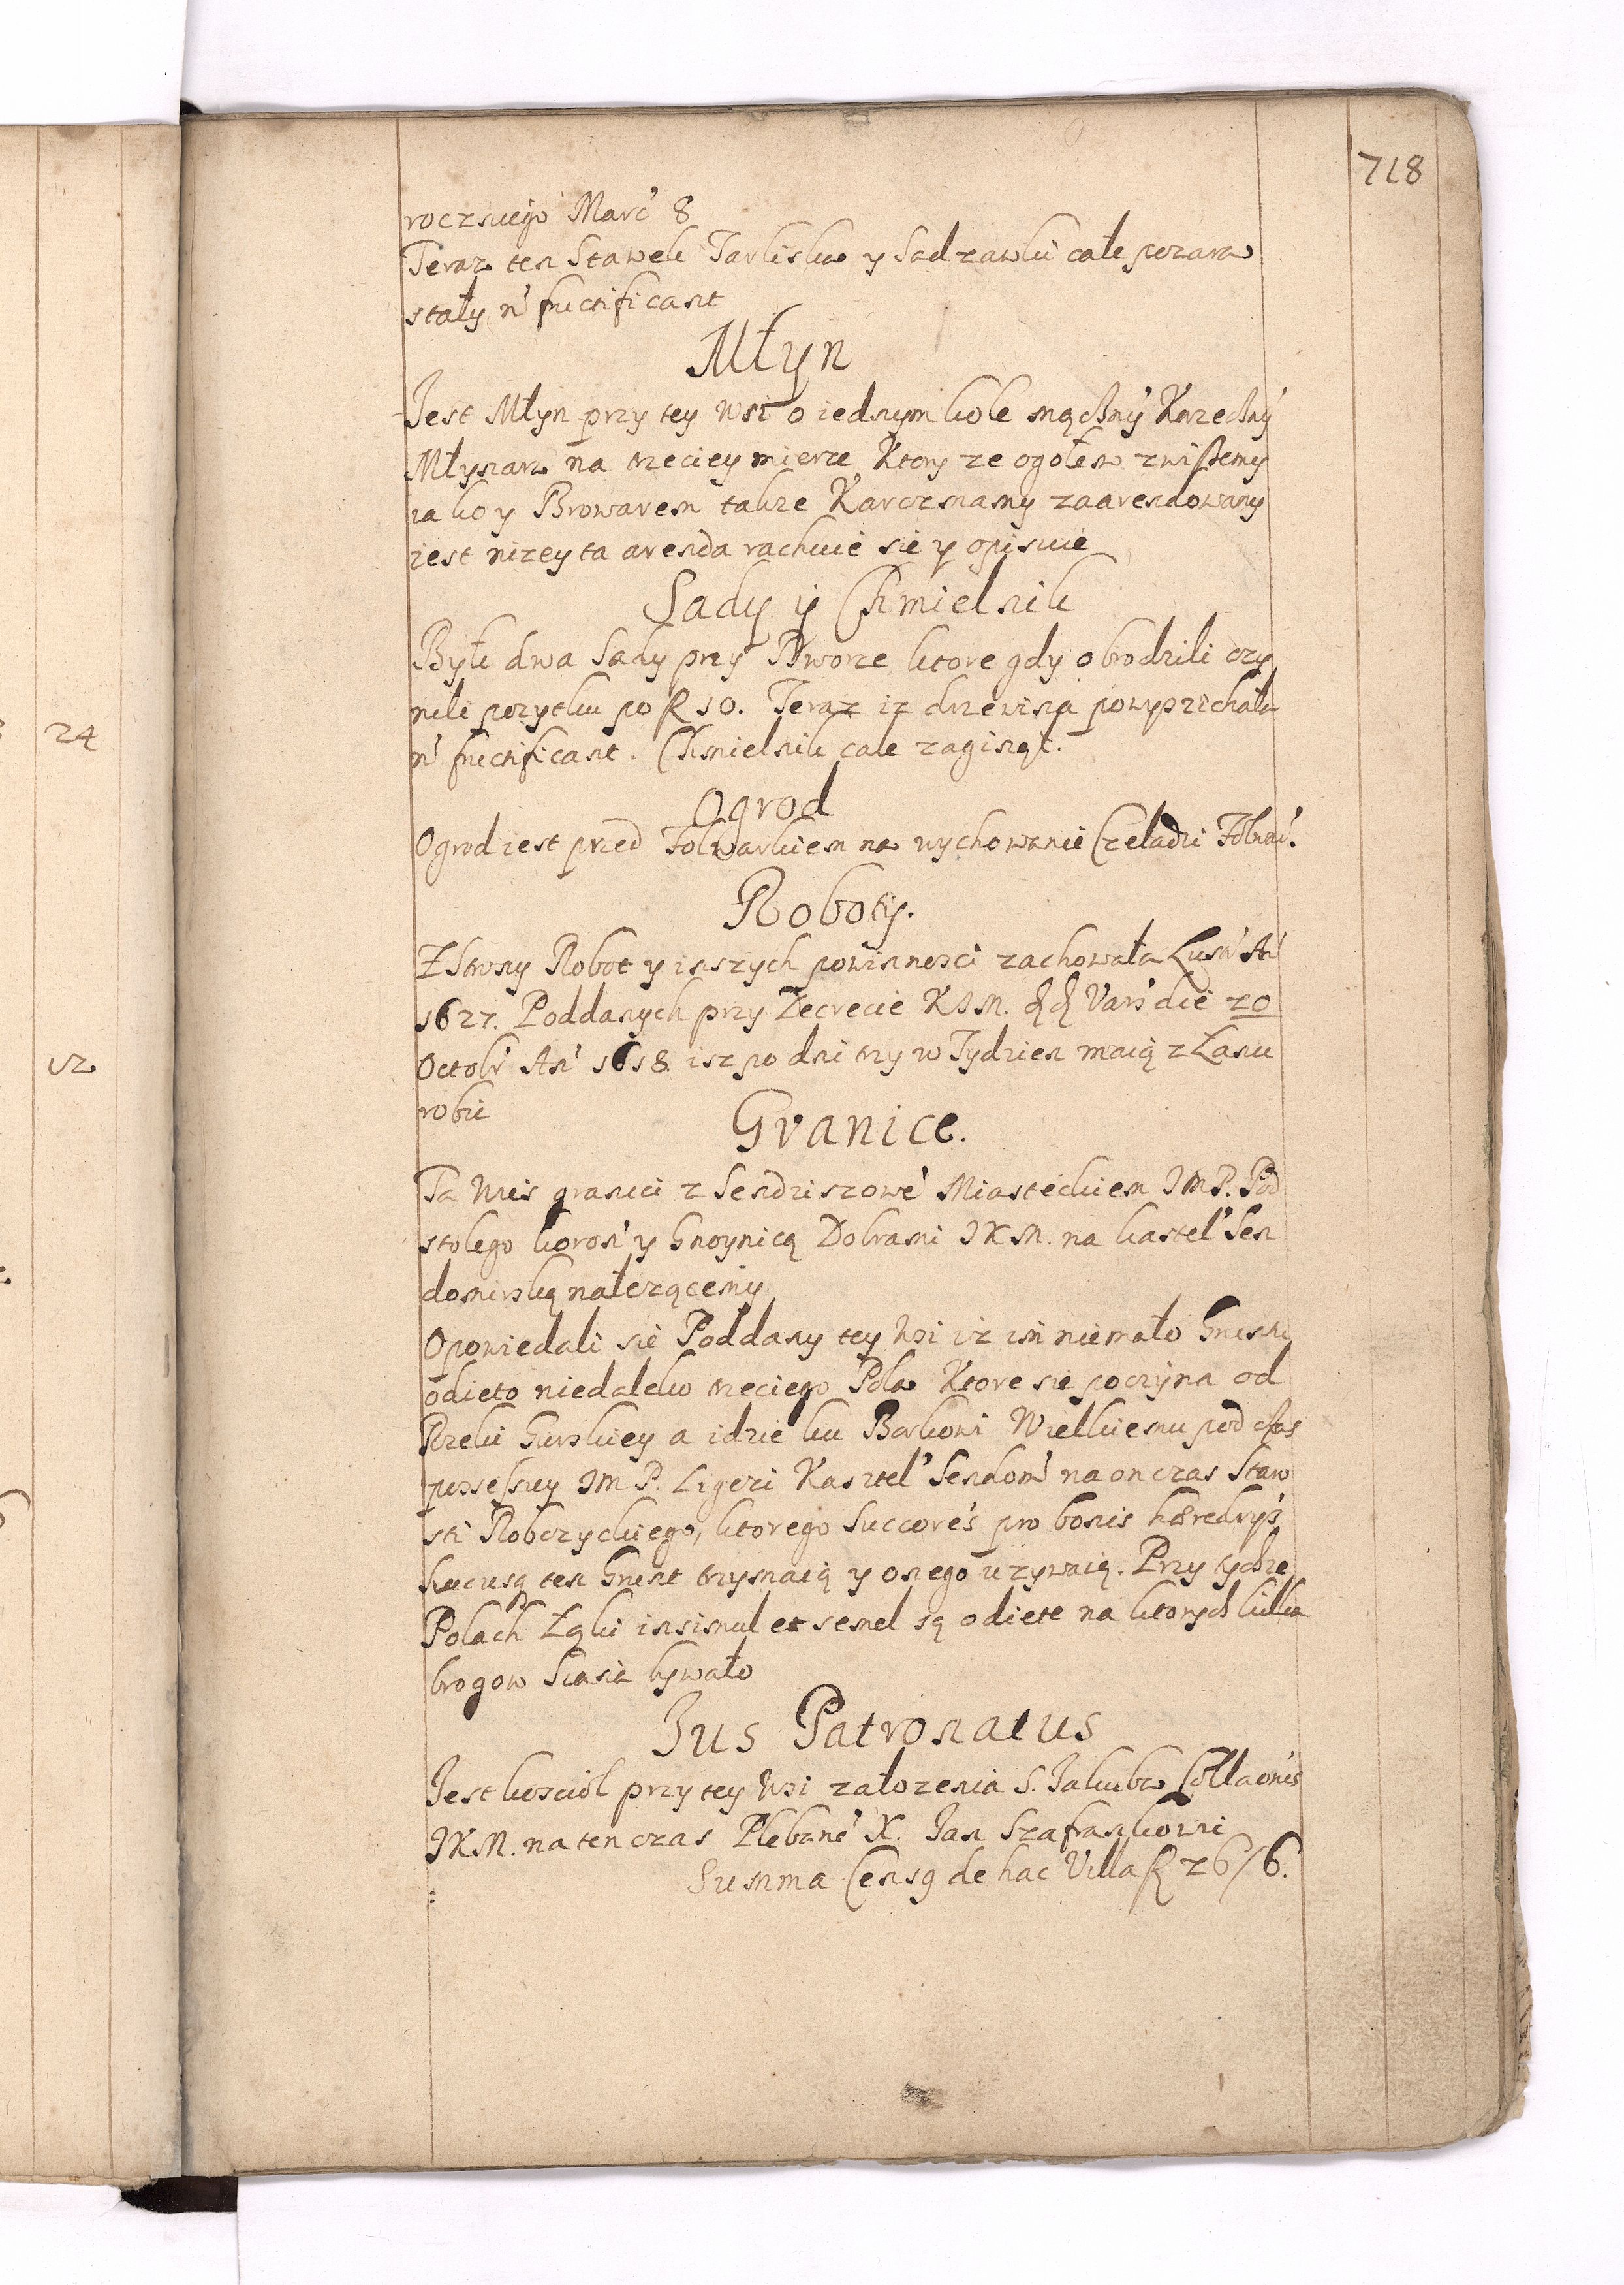 718
rocznego Marc' 8
Teraz ten Stawek Tarlisko y Sadzawki cale pozara
stały n' fructificant
Młyn
Jest Młyn przy tey wsi o iednym kole mączny Korzeczny
Młynarz na trzeciey mierze Ktory ze ogołem zwiszemy
iako y Browarem takze Karczmamy zaarendowany
iest nizey ta arenda rachuie sie y opisuie
Sady y Chmielnik
Byli dwa Sady przy Dworze ktore gdy obrodzili czy
nili pozytku po R 10. Teraz iz drzewina powyprzichała
n' fructificant. Chmielnik cale zaginął.
Ogrod
Ogrod iest przed Folwarkiem na wychowanie Czeladzi Folwar'.
Roboty.
Z Strony Robot y inszych powinnosci zachowała Lustr' An'
1627. Poddanych przy Decrecie KJM. Vars' die 20
Octobr' An' 1618 isz po dni trzy w Tydzien maią z Łanu
robic
Granice.
Ta Wies graniczi z Sendziszowe' Miasteckiem JMP. Pod
stolego koron' y Gnoynicą Dobrami JKM. na kastel' Sen
domirską należącemy
Opowiedali sie Poddany tey Wsi iż im niemało Gruntu
odieto niedaleko trzeciego Pola Ktore sie poczyna od
Rzeki Gurskiey a idzie ku Borkowi Wielkiemu pod czas
possessiey JMP. Ligezi Kasztel' Sendom' na on czas Staro
sti Robczyckiego, ktorego Successores pro bonis hæredrys
hucusq ten Grunt trzymaią y onego używaią. Przy tychze
Polach Łąki insimul et semel są odiete na ktorych kilka
brogow Siana bywało
Jus Patronatus
Jest kosciol przy tey Wsi założenia S. Jakuba Collaonis
JKM. na ten czas Plebane' X. Jan Szafrankowi
Summa Censq de hac Villa R 26/6.
24
12